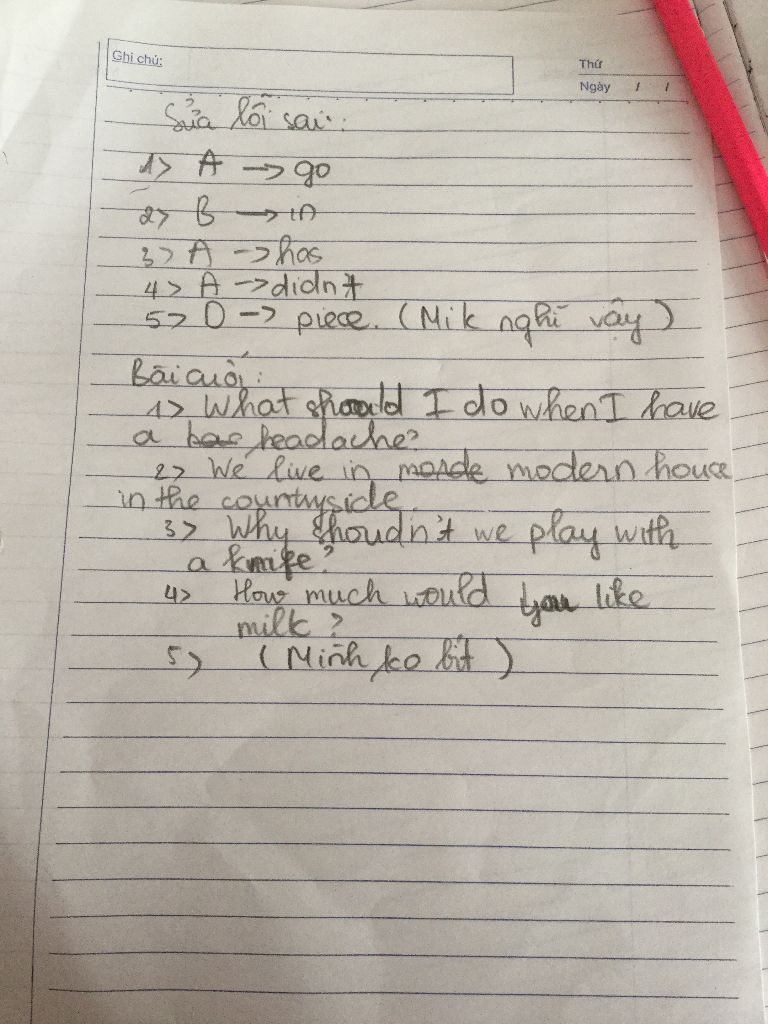 Ghi chú:
Thứ
Ngày / /
Sửa lỗi sai:
1> A -> go
2> B -> in
3> A -> has
4> A -> didn't
5> D -> piece. (Mik nghĩ vậy)
Bài cuối:
1> What should I do when I have
a headache?
2> We live in modern house
in the countryside.
3> Why shoudn't we play with
a knife?
4> How much would you like
milk?
5> (Mình ko bít)